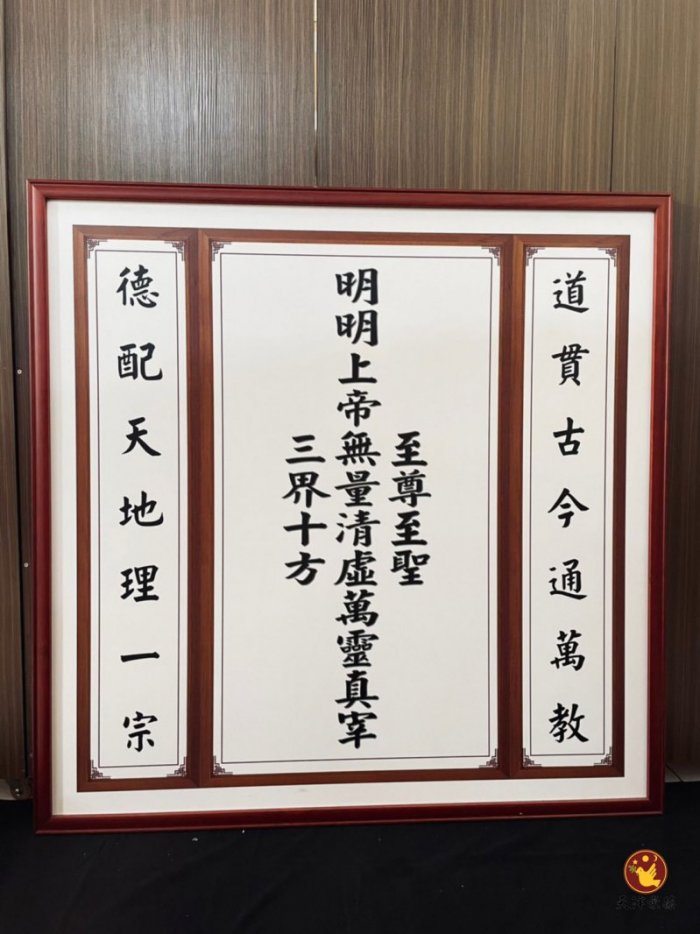 道貫古今通萬教
至尊至聖
明明上帝無量清虛萬靈真宰
三界十方
德配天地理一宗